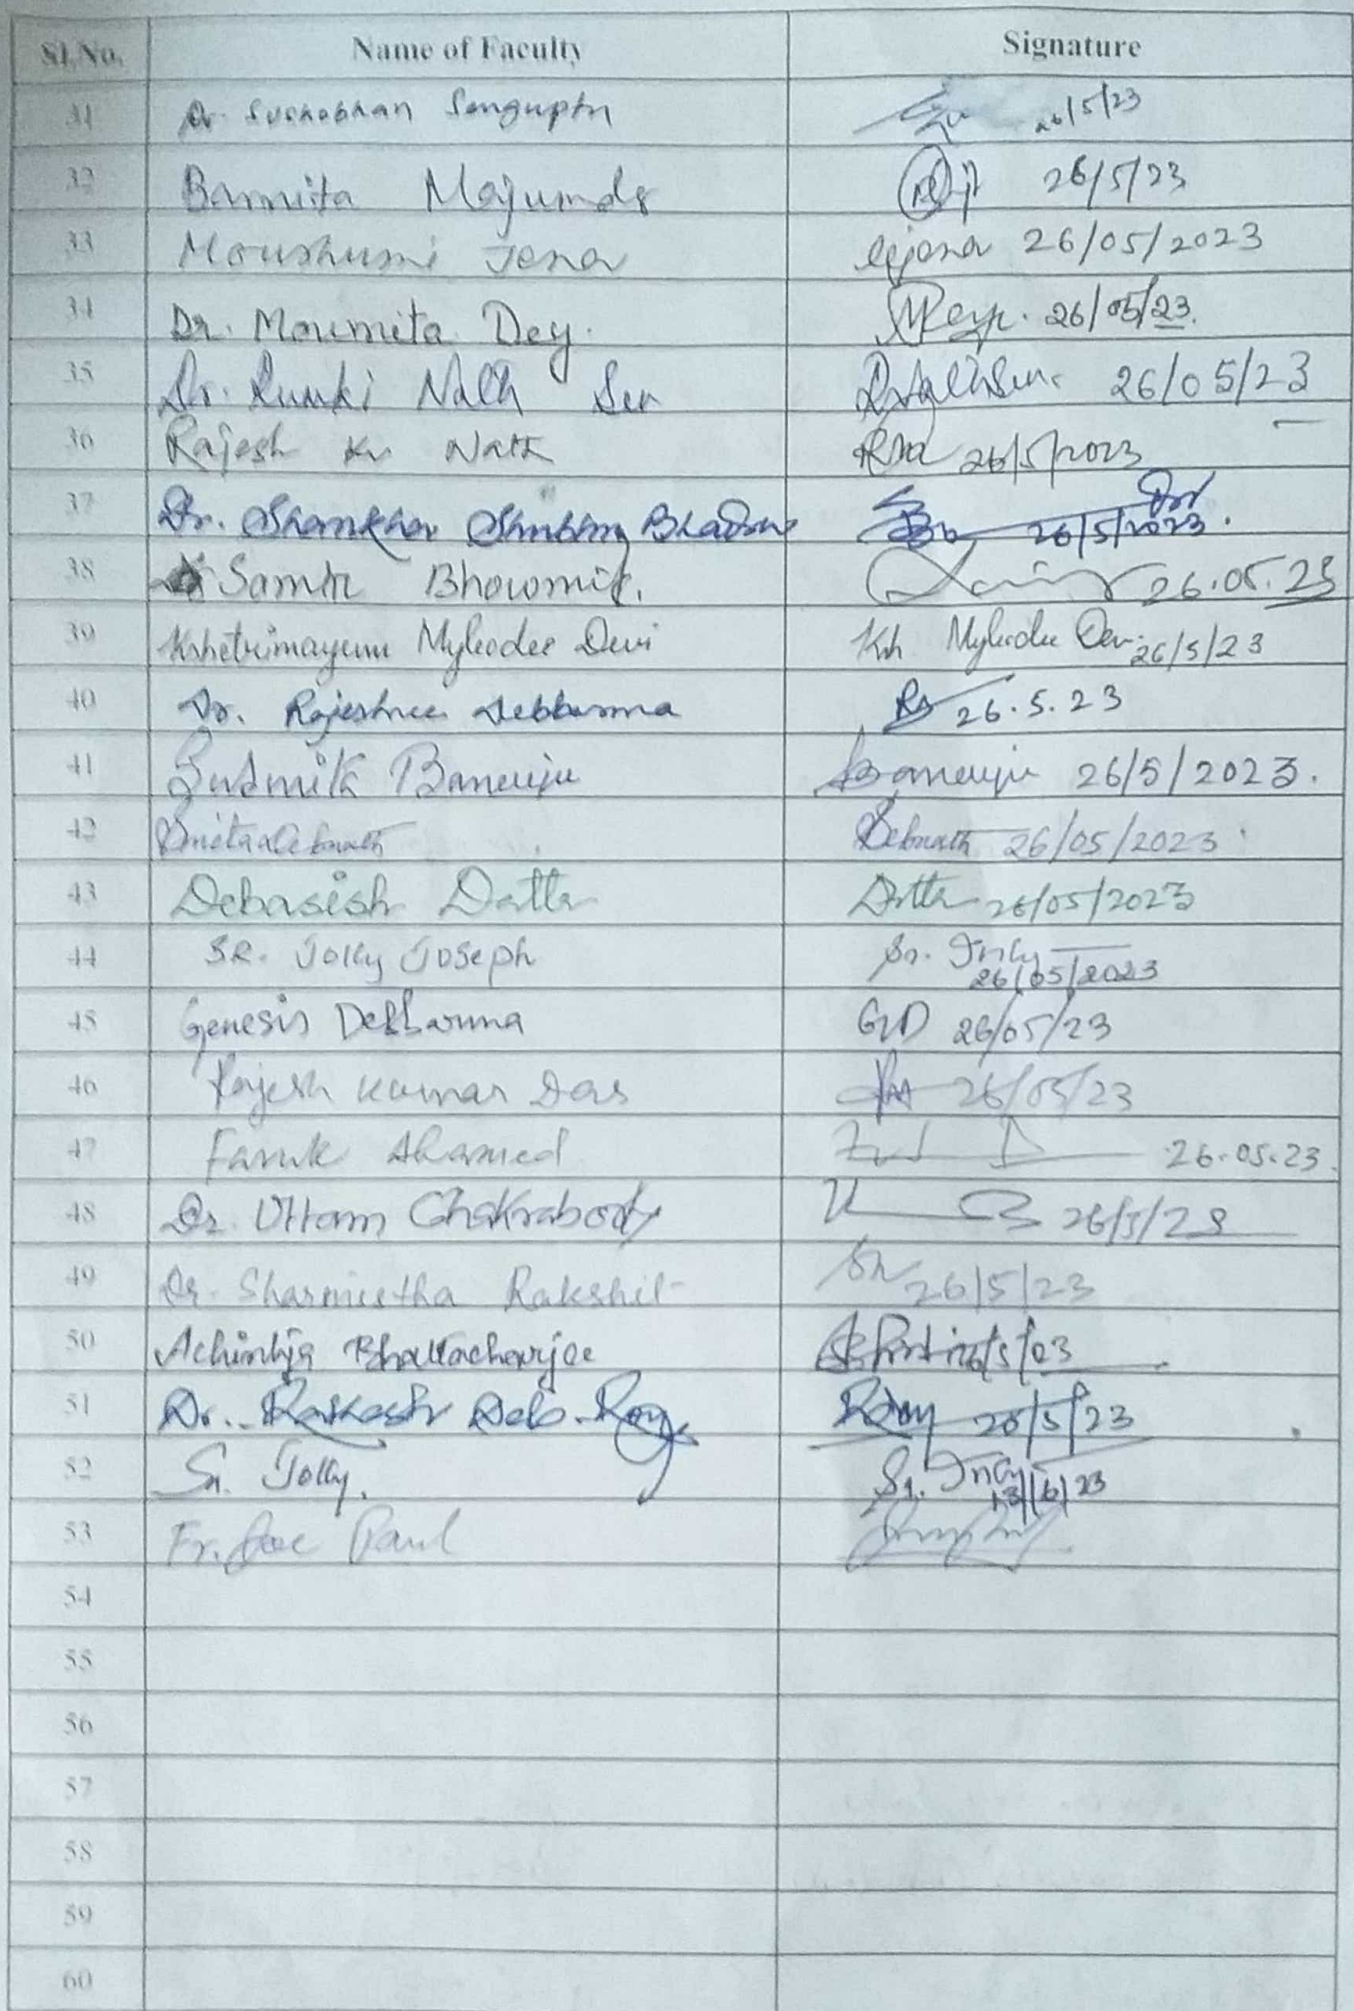 Sl.No. Name of Faculty Signature
31 Dr. Suchobhan Sengupta 26/5/23
32 Barnita Majumder 26/5/23
33 Moushumi Jena 26/05/2023
34 Dr. Moumita Dey. 26/05/23.
35 Dr. Runki Nath Sen 26/05/23
36 Rajesh Kr Nath 26/5/2023
37 Dr. 26/5/2023.
38 Bhowmik. 26.05.23
39 Kshetrimayum Myleodee Devi Ksh Myleodee Devi 26/5/23
40 Dr. Rajeshree Debbarma 26.5.23
41 Banerjee Banerjee 26/5/2023.
42 Smita Debnath Debnath 26/05/2023
43 Debasish Datta Datta 26/05/2023
44 SR. Jolly Joseph Sr. Jolly
26/05/2023
45 Genesis Debbarma GD 26/05/23
46 Rajesh Kumar Das 26/05/23
47 Faruk Ahamed 26.05.23
48 Dr. Uttam Chakraborty 26/5/23
49 Dr. Sharmistha Rakshit 26/5/23
50 Achintya Bhattacharjee
51 Dr. Rakesh Deb Roy 26/5/23
52 Sr. Jolly. Sr. Jolly
13/6/23
53 Fr. Joe Paul
54
55
56
57
58
59
60